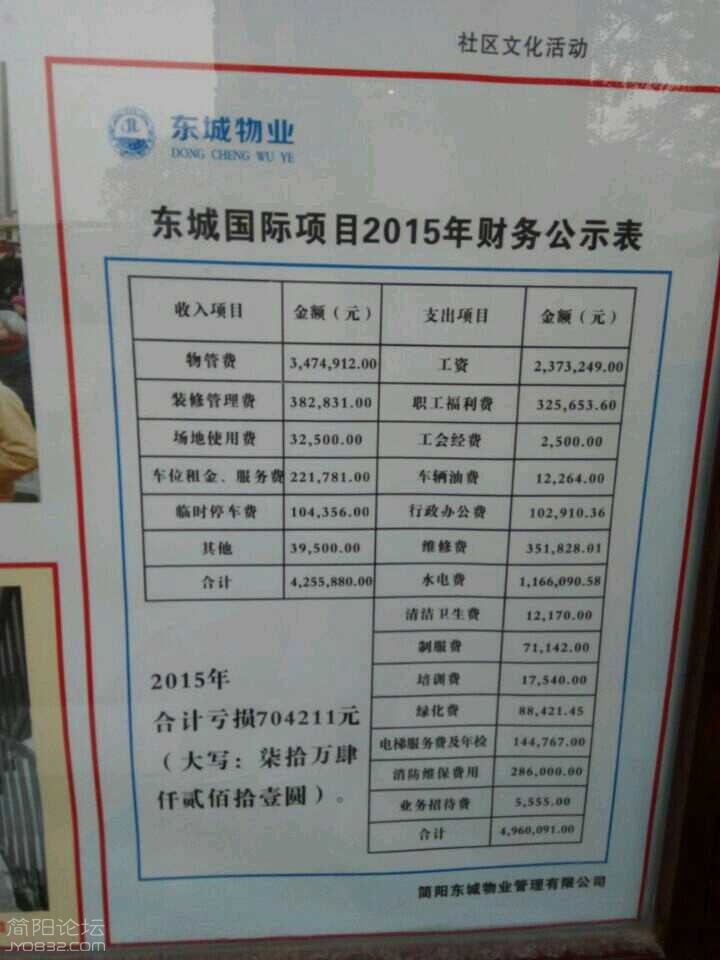 社区文化活动
东城物业
DONG CHENG WU YE
东城国际项目2015年财务公示表
收入项目 金额（元） 支出项目 金额（元）
物管费 3,474,912.00 工资 2,373,249.00
装修管理费 382,831.00 职工福利费 325,653.60
场地使用费 32,500.00 工会经费 2,500.00
车位租金、服务费 221,781.00 车辆油费 12,264.00
临时停车费 104,356.00 行政办公费 102,910.36
其他 39,500.00 维修费 351,828.01
合计 4,255,880.00 水电费 1,166,090.58
清洁卫生费 12,170.00
制服费 71,142.00
培训费 17,540.00
绿化费 88,421.45
电梯服务费及年检 144,767.00
消防维保费用 286,000.00
业务招待费 5,555.00
合计 4,960,091.00
2015年
合计亏损704211元
（大写：柒拾万肆
仟贰佰拾壹圆）。
简阳东城物业管理有限公司
简阳论坛
JY0832.com